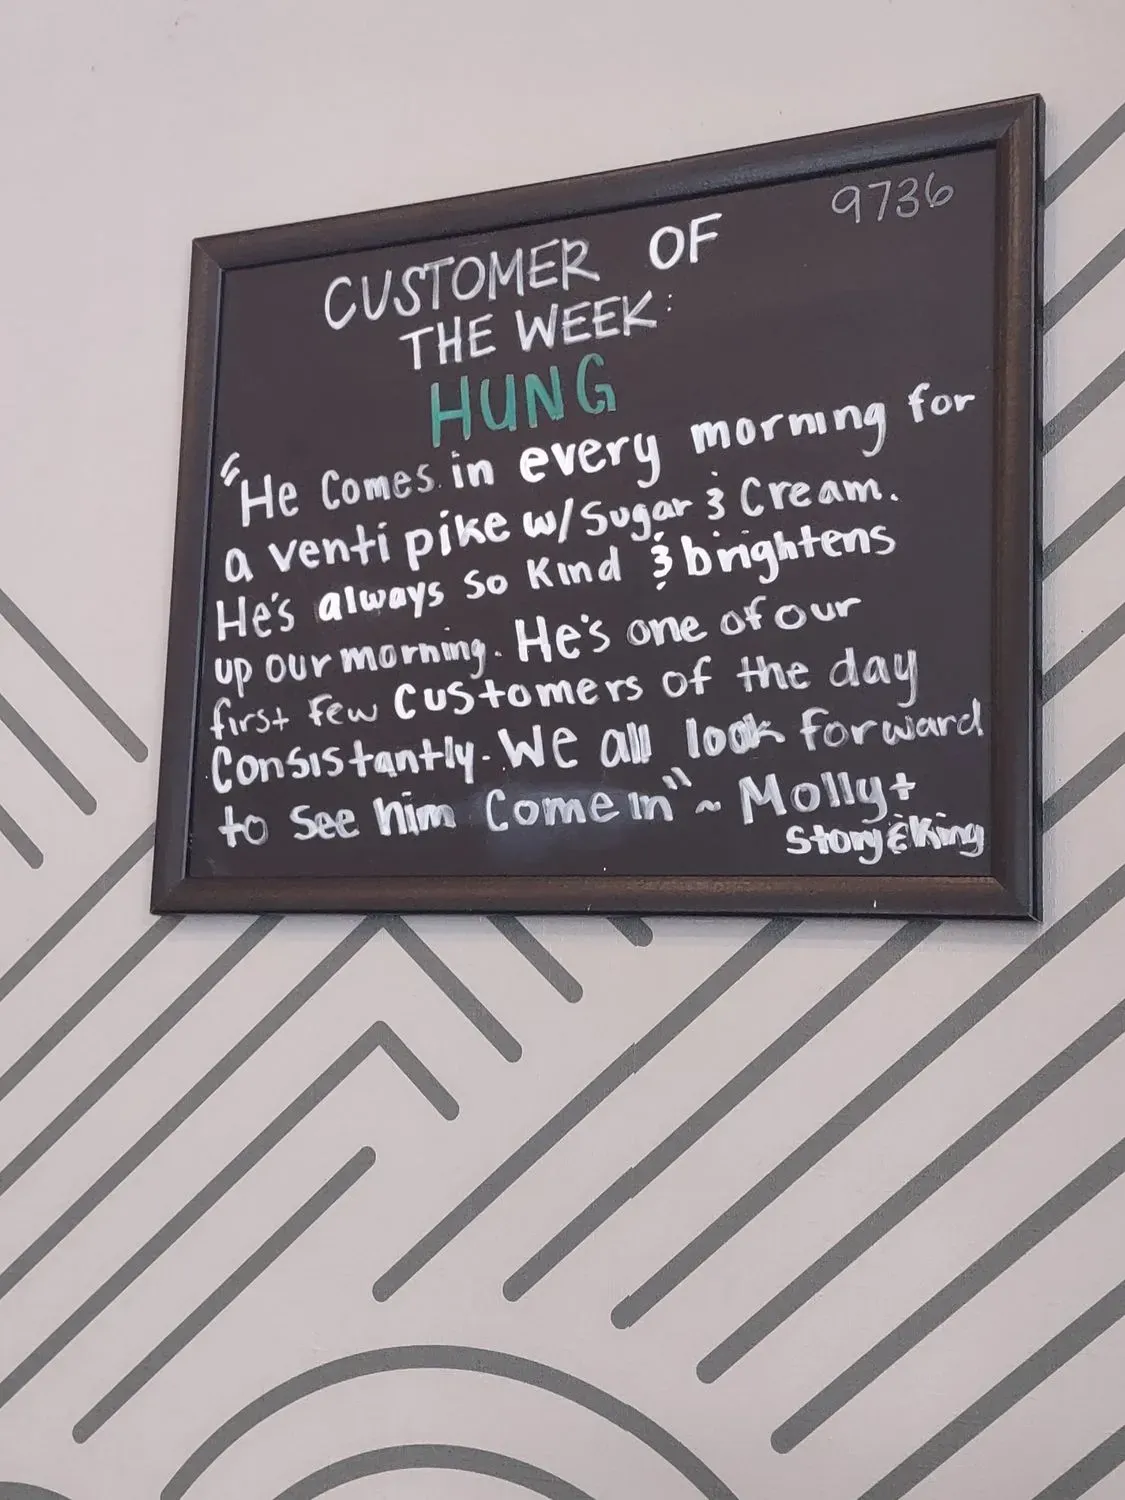 9736
CUSTOMER OF
THE WEEK:
HUNG
"He Comes in every morning for
a venti pike w/ Sugar & Cream.
He's always So Kind & brightens
up our morning. He's one of our
first few customers of the day
Consistantly. We all look forward
to See him Come in" ~ Molly +
Story & King